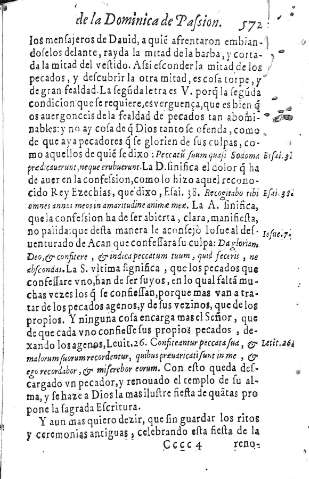 de la Dominica de Passion.
572
los mensajeros de Dauid, a quiē afrentaron embian-
doselos delante, rayda la mitad de la barba, y corta-
da la mitad del vestido. Assi esconder la mitad de los
pecados, y descubrir la otra mitad, es cosa torpe, y
de gran fealdad. La segūda letra es V. porq̃ la segūda
condicion que se requiere, es verguença, que es bien q̃
os auergonceis de la fealdad de pecados tan abomi-
nables: y no ay cosa de q̃ Dios tanto se ofenda, como
de que aya pecadores q̃ se glorien de sus culpas, co-
mo aquellos de quiē se dixo: Peccatū suum quasi Sodoma
Esai. 3.
prædicauerunt, neque erubuerunt. La D. sinifica el dolor q̃ ha
de auer en la confession, como lo hizo aquel recono-
cido Rey Ezechias, que dixo, Esai. 38. Recogitabo tibi
Esai. 38.
omnes annos meos in amaritudine animæ meæ. La A. sinifica,
que la confession ha de ser abierta, clara, manifiesta,
no palida: que desta manera le aconsejò Iosue al des-
Iosue. 7.
uenturado de Acan que confessara su culpa: Da gloriam
Deo, & confitere, & indica peccatum tuum, quid feceris, ne
abscondas. La S. vltima significa, que los pecados que
confessare vno, han de ser suyos, en lo qual faltā mu-
chas vezes los q̃ se confiessan, porque mas van a tra-
tar de los pecados agenos, y de sus vezinos, que de los
propios. Y ninguna cosa encarga mas el Señor, que
de que cada vno confiesse sus propios pecados, de-
xando los agenos, Leuit. 26. Confiteantur peccata sua, &
Leuit. 26.
malorum suorum recordentur, quibus preuaricati sunt in me, &
ego recordabor, & miserebor eorum. Con esto queda des-
cargado vn pecador, y renouado el templo de su al-
ma, y se haze a Dios la mas ilustre fiesta de quātas pro
pone la sagrada Escritura.
Y aun mas quiero dezir, que sin guardar los ritos
y ceremonias antiguas, celebrando esta fiesta de la
Cccc 4
reno-